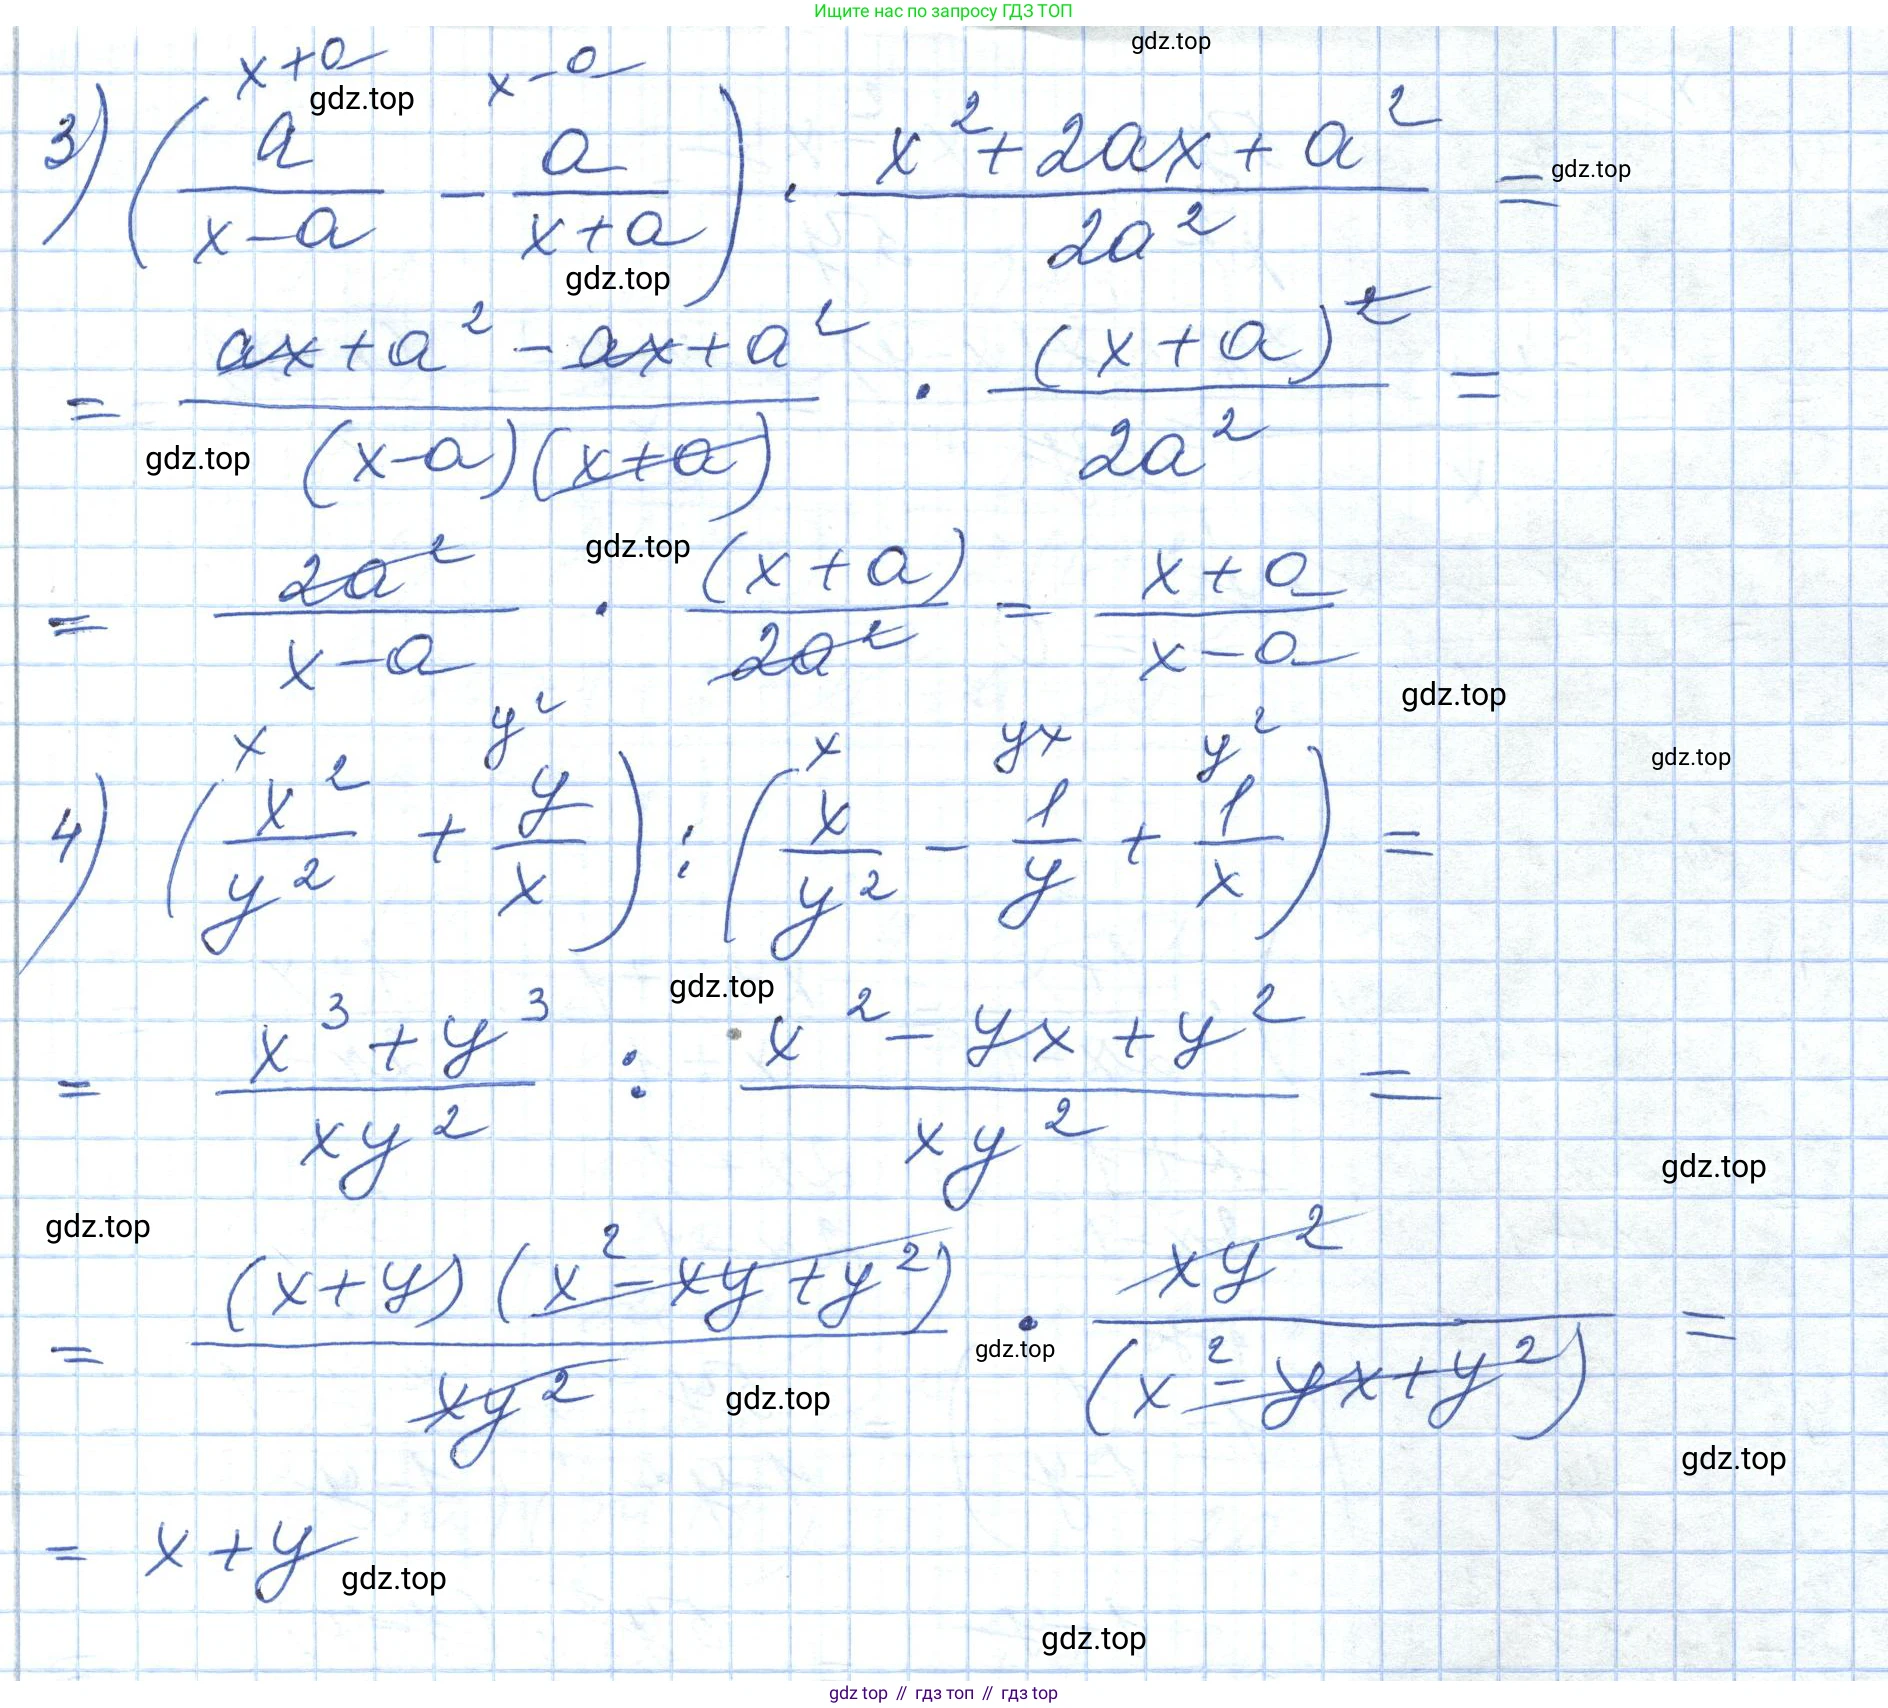 Ищите нас по запросу ГДЗ ТОП
gdz.top
x+a x-a
gdz.top
3) (a/(x-a) - a/(x+a)) · (x²+2ax+a²)/(2a²) =
gdz.top
gdz.top
= (ax+a²-ax+a²)/((x-a)(x+a)) · (x+a)²/(2a²) =
gdz.top
gdz.top
= 2a²/(x-a) · (x+a)/(2a²) = (x+a)/(x-a)
gdz.top
x y² x yx y²
gdz.top
4) (x²/y² + y/x) : (x/y² - 1/y + 1/x) =
gdz.top
= (x³+y³)/(xy²) : (x²-yx+y²)/(xy²) =
gdz.top
gdz.top
= ((x+y)(x²-xy+y²))/(xy²) · xy²/(x²-yx+y²) =
gdz.top
gdz.top
gdz.top
= x+y
gdz.top
gdz.top
gdz top // гдз топ // гдз top